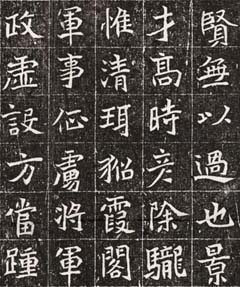 賢無以過也景
才髙時彥除
惟清珥貂霞閣
軍事征虜將軍
政虛設方當踵